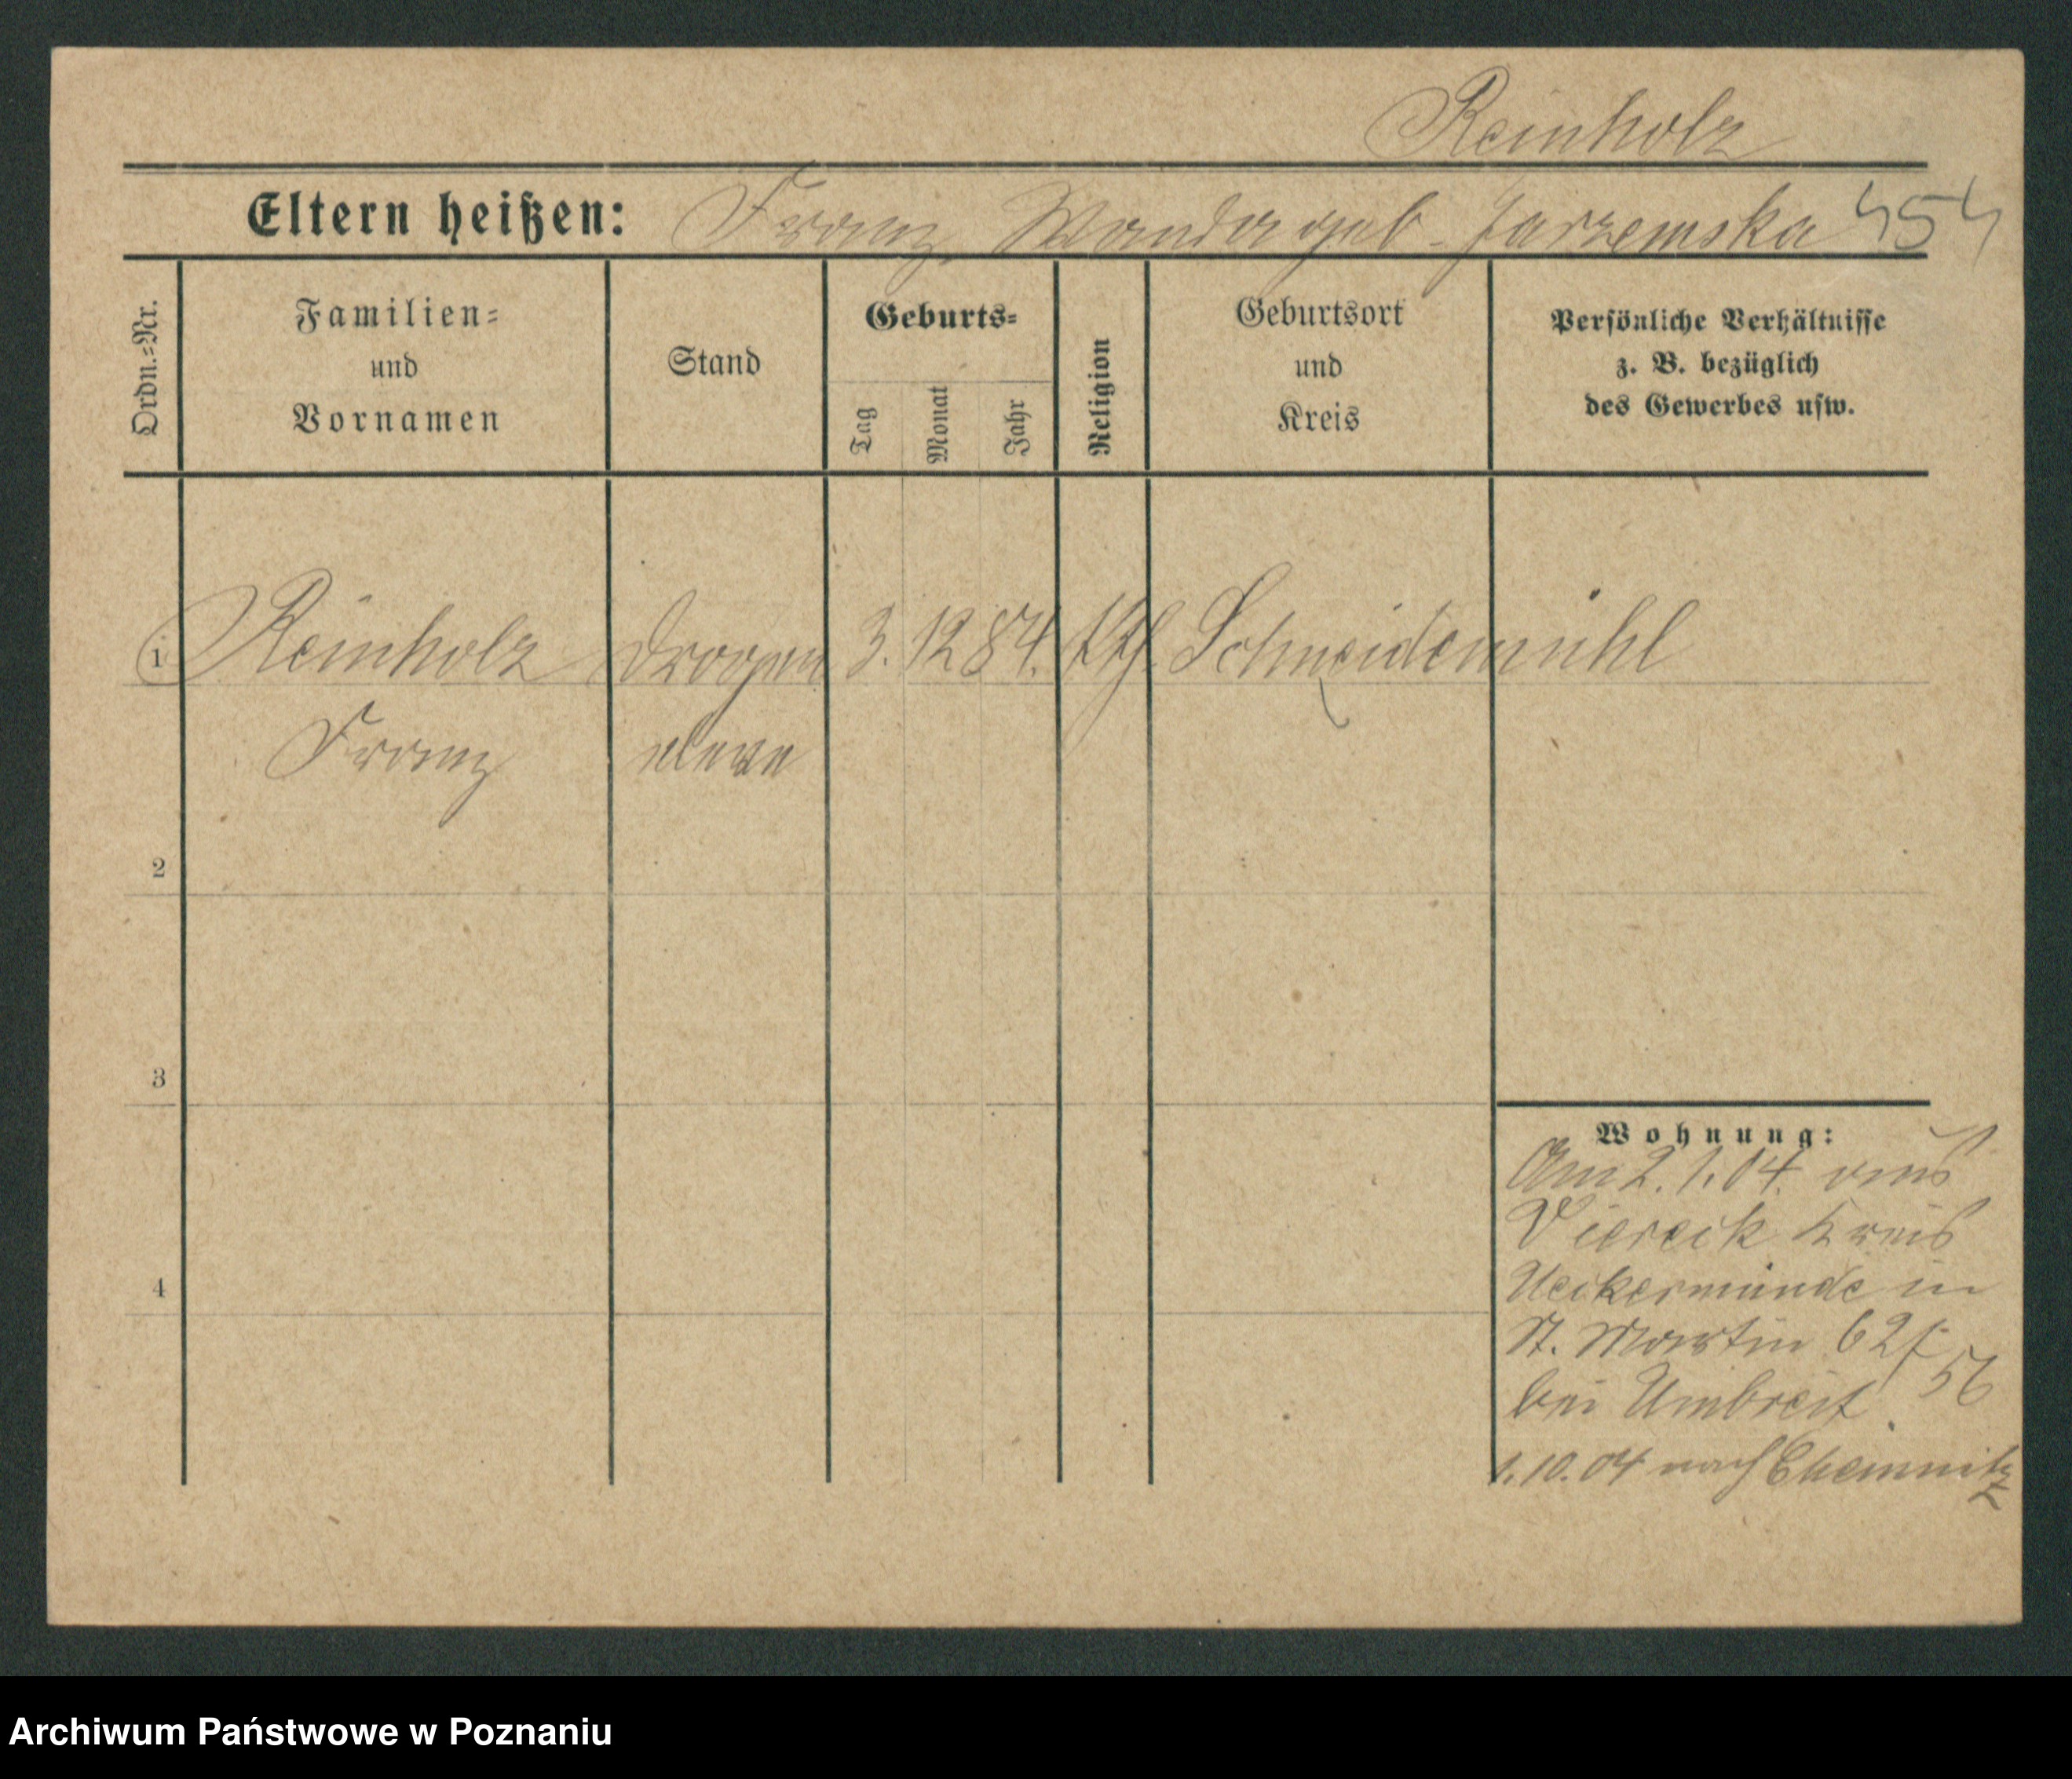 Reinholz
Eltern heißen: Franz, Wanda geb. Jarzemska 454
Ordn.=Nr.
Familien=
und
Vornamen
Stand
Geburts=
Tag
Monat
Jahr
Religion
Geburtsort
und
Kreis
Persönliche Verhältnisse
z. B. bezüglich
des Gewerbes usw.
1 Reinholz Drogen 3. 12 84. kth. Schneidemühl
Franz eleve
2
3
4
Wohnung:
Am 2. 1. 04. aus
Viereck Kreis
Ueckermünde in
St. Martin 62
bei Umbreit. 56
1. 10. 04 nach Chemnitz
Archiwum Państwowe w Poznaniu